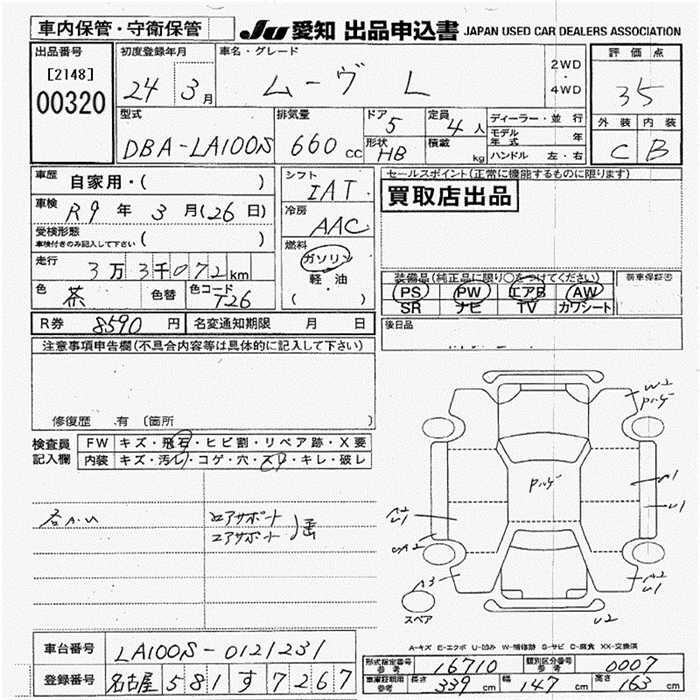 車内保管・守衛保管
Ju 愛知 出品申込書 JAPAN USED CAR DEALERS ASSOCIATION
出品番号
[2148]
00320
初度登録年月
24 3月
車名・グレード
ムーヴ L
2WD
・
4WD
評価点
35
外装 内装
C B
型式
DBA-LA100S
排気量
660 cc
ドア 5
形状 HB
定員 4人
積載 kg
ディーラー・並行
モデル年式 年
ハンドル 左・右
車歴 自家用・( )
車検 R9年 3月(26日)
受検形態
車検付きのみ記入して下さい ( )
走行 3万3千072km
色 茶 色替 色コード T26
シフト
IAT
冷房
AAC
燃料
ガソリン
軽・油
( )
セールスポイント(正常に機能するものに限ります)
買取店出品
装備品(純正品に限り○をつけてください) 新車保証書
PS PW エアB AW
SR ナビ TV カワシート
後日品
R券 8590円 名変通知期限 月 日
注意事項申告欄(不具合内容等は具体的に記入して下さい)
修復歴 . 有 〔箇所 〕
検査員記入欄
FW キズ・飛石・ヒビ割・リペア跡・X要
内装 キズ・汚レ・コゲ・穴・スレ・キレ・破レ
エアサポート
エアサポート
W2
A1
U1
U1
A3
A2
U1
U2
スペア
A-キズ E-エクボ U-凹み W-補修跡 S-サビ C-腐食 XX-交換済
車台番号 LA100S-0121231
登録番号 名古屋 581 す 7267
形式指定番号 参考 16710 類別区分番号 参考 0007
車庫証明用 参考 長さ 339 cm 幅 147 cm 高さ 163 cm